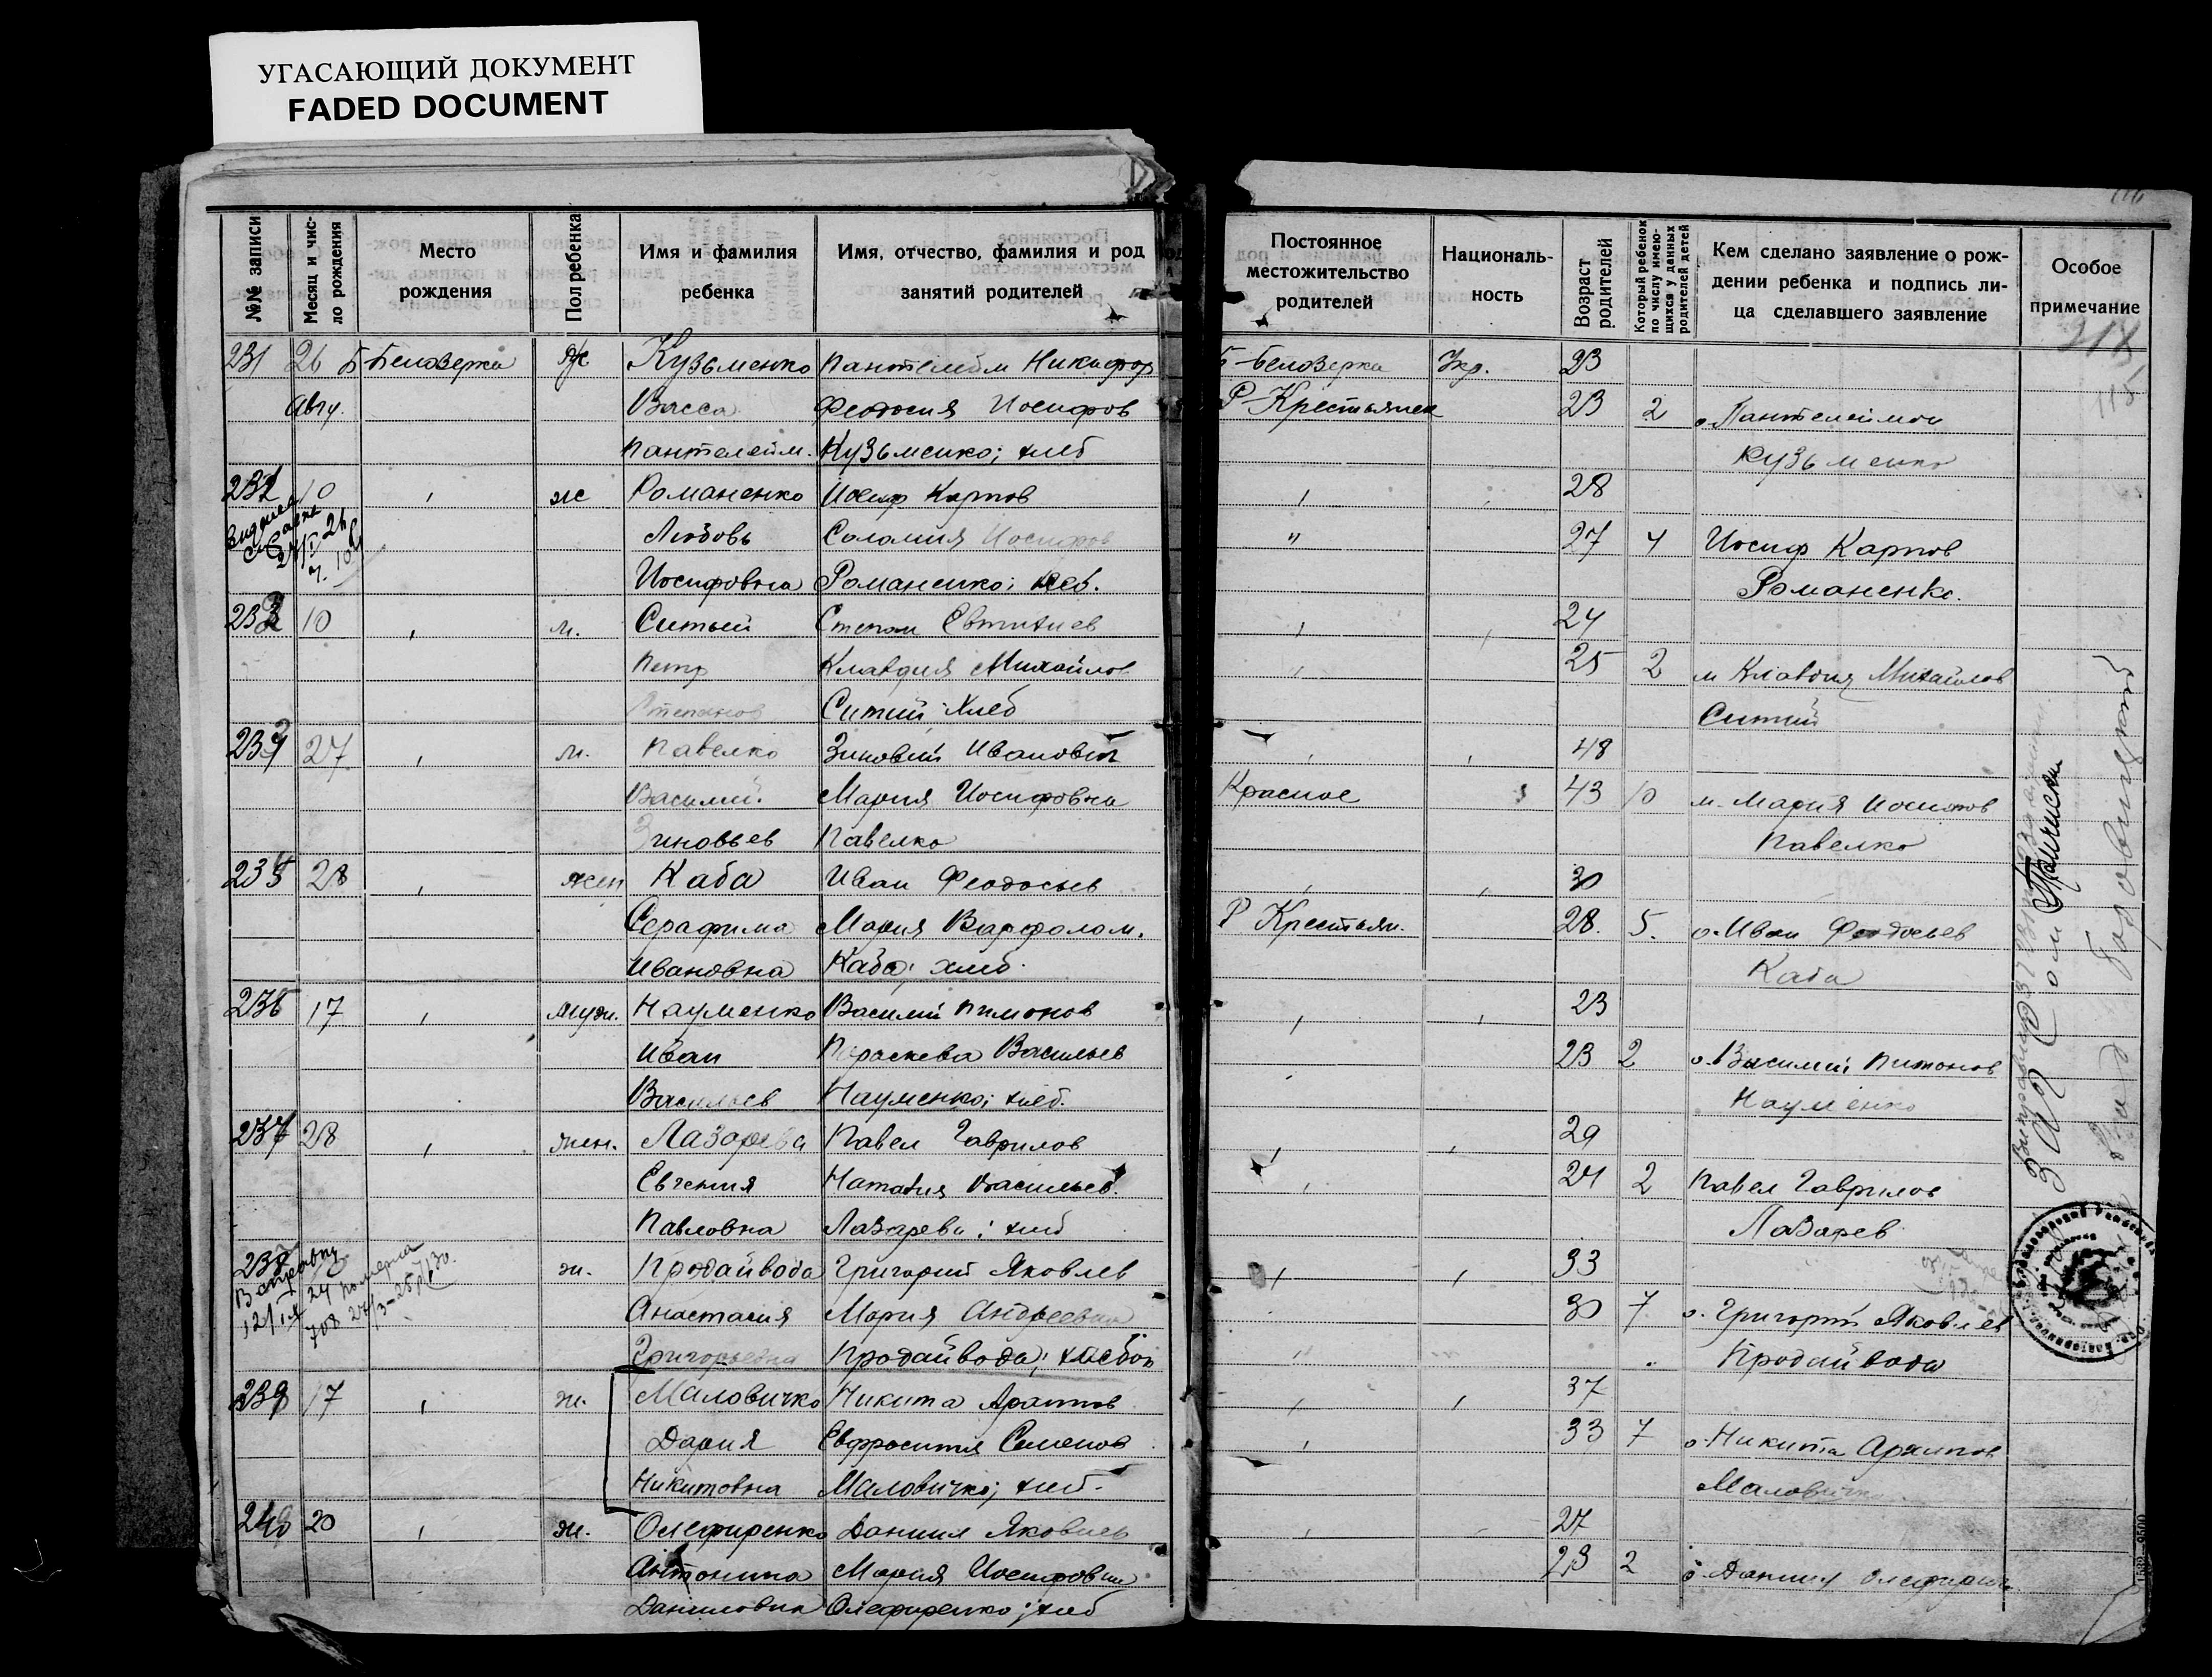 УГАСАЮЩИЙ ДОКУМЕНТ
FADED DOCUMENT
№№ записи
Месяц и чис-
ло рождения
Место
рождения
Пол ребенка
Имя и фамилия
ребенка
Имя, отчество, фамилия и род
занятий родителей
Постоянное
местожительство
родителей
Националь-
ность
Возраст
родителей
Который ребенок
по числу имею-
щихся у данных
родителей детей
Кем сделано заявление о рож-
дении ребенка и подпись ли-
ца сделавшего заявление
Особое
примечание
218
115
231 26 Б-Белозерка ж Кузьменко Пантелейм Никифор Б-Белозерка Укр. 23
Авгу. Васса Феодосия Иосифов Р-Крестьянск 23 2 о. Пантелеймон
Пантелейм. Кузьменко; хлеб Кузьменко
232 10 , ж Романенко Иосиф Карпов , , 28
Любовь Соломия Иосифов " 27 4 Иосиф Карпов
Иосифовна Романенко; хлеб. Романенко.
233 10 , м. Ситый Степан Евтихиев , , 24
Петр Клавдия Михайлов " 25 2 м Клавдия Михайлов
Степанов Ситий хлеб Ситий
234 27 , м. Павелко Зиновий Иванович , , 48
Василий. Мария Иосифовна Красное 43 10 м. Мария Иосифов
Зиновьев Павелко Павелко
235 28 , жен Каба Иван Феодосьев , , 30
Серафима Мария Варфолом. Р Крестьян. 28. 5. о. Иван Феодосьев
Ивановна Каба; хлеб. Каба
236 17 , муж. Науменко Василий Пимонов , , 23
Иван Параскева Васильев , 23 2 о. Василий Пимонов
Васильев Науменко; хлеб. Науменко
237 28 , жен. Лазарева Павел Гаврилов , , 29
Евгения Наталия Васильев. , 24 2 Павел Гаврилов
Павловна Лазарева; хлеб Лазарев
238 ж. Продайвода Григорий Яковлев , , 33
Анастасия Мария Андреевна 30 7 о. Григорий Яковлев
Григорьевна Продайвода; хлебоп " Продайвода
239 17 , ж. Маловичко Никита Архипов , , 37
Дария Евфросиния Семенов , 33 7 о. Никита Архипов
Никитовна Маловичко; хлеб. Маловичко
240 20 , ж. Олефиренко Даниил Яковлев , , 27
Антонина Мария Иосифовна 23 2 о. Даниил Олефирен
Даниловна Олефиренко; хлеб